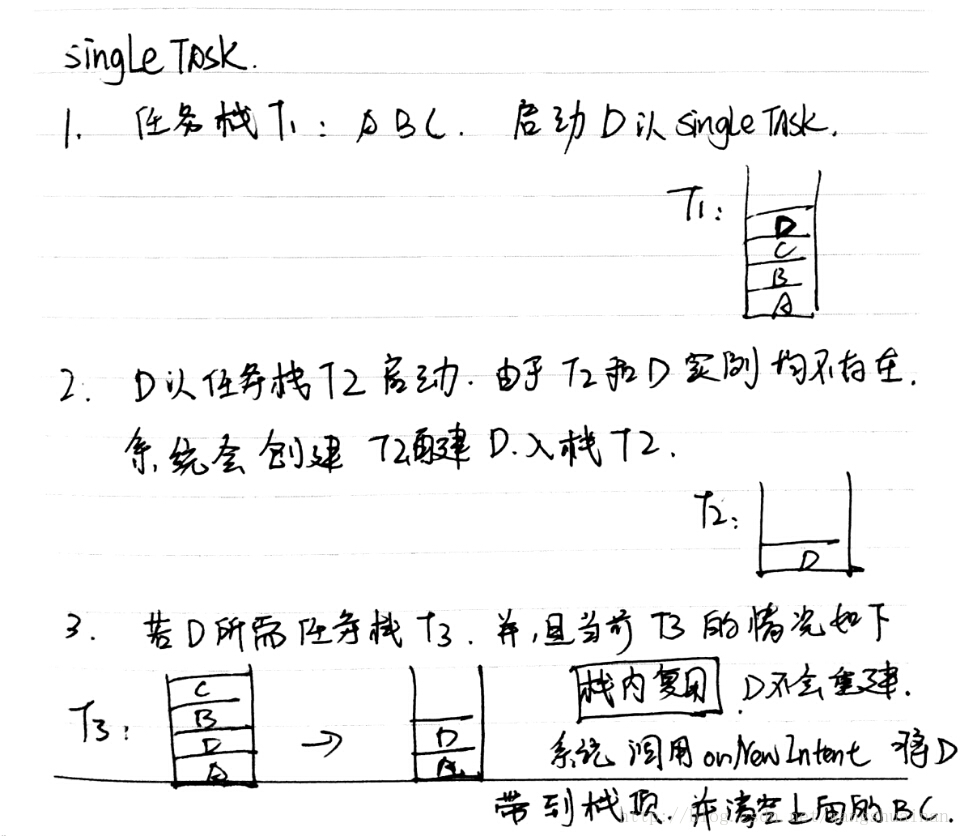 singleTask.
1. 任务栈T1: ABC. 启动D以singleTask.
T1:
D
C
B
A
2. D以任务栈T2启动. 由于T2和D实例均不存在.
系统会创建T2再建D.入栈T2.
T2:
D
3. 若D所需任务栈T3. 并,且当前T3的情况如下
T3:
C
B
D
A
→
D
A
栈内复用 D不会重建.
系统调用onNewIntent 将D
带到栈顶.并清空上面的BC.